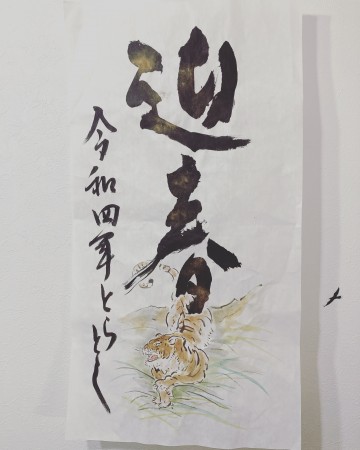 迎春
令和四年とらとし